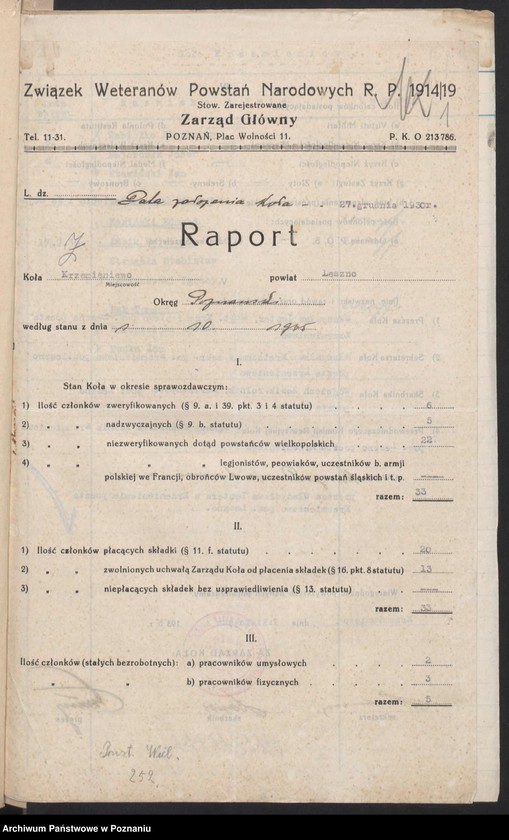 Związek Weteranów Powstań Narodowych R. P. 1914|19
Stow. Zarejestrowane
Zarząd Główny
Tel. 11-31. POZNAŃ, Plac Wolności 11. P. K. O 213786.
1
L. dz. Data założenia koła - - 27.grudnia 1930r.
Raport
Koła Krzemieniewo powiat Leszno
Miejscowość
Okręg Poznański
według stanu z dnia 1 10 1935
I.
Stan Koła w okresie sprawozdawczym:
1) Ilość członków zweryfikowanych (§ 9. a. i 39. pkt. 3 i 4 statutu) . . . . 6
2) „ „ nadzwyczajnych (§ 9. b. statutu) . . . . . . 5
3) „ „ niezweryfikowanych dotąd powstańców wielkopolskich . . . 22
4) „ „ „ „ legjonistów, peowiaków, uczestników b. armji
polskiej we Francji, obrońców Lwowa, uczestników powstań śląskich i t. p. —
razem: 33
II.
1) Ilość członków płacących składki (§ 11. f. statutu) . . . . . . 20
2) „ „ zwolnionych uchwałą Zarządu Koła od płacenia składek (§ 16. pkt. 8 statutu) 13
3) „ „ niepłacących składek bez usprawiedliwienia (§ 13. statutu) . . —
razem: 33
III.
Ilość członków (stałych bezrobotnych): a) pracowników umysłowych . . . . 2
„ „ b) pracowników fizycznych . . . . . 3
razem: 5
Powst. Wiel.
252
Archiwum Państwowe w Poznaniu